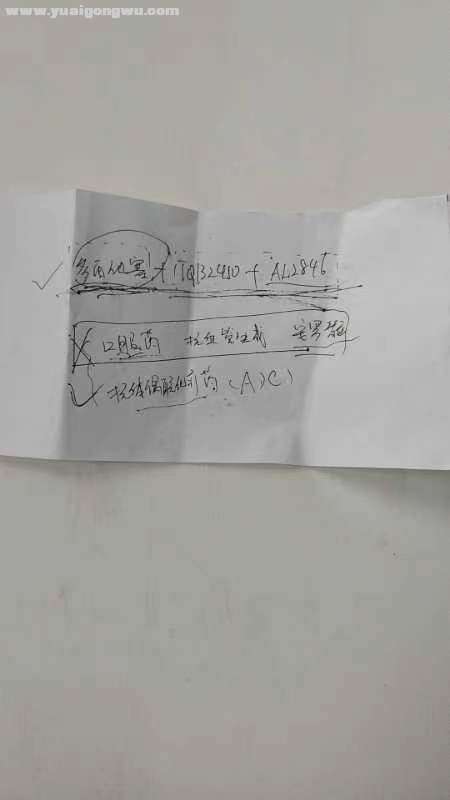 www.yuaigongwu.com
多西他赛 + TQB2450 + AL2846
口服药 抗血管生成 安罗替
抗体偶联 药 (ADC)